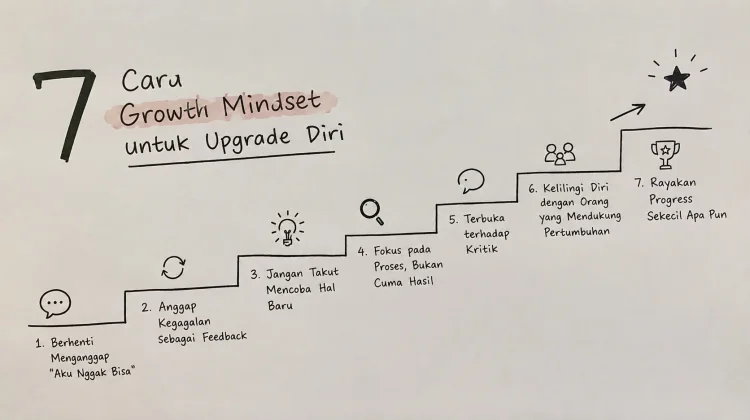 7
Cara
Growth Mindset
untuk Upgrade Diri
1. Berhenti
Menganggap
"Aku Nggak Bisa"
2. Anggap
Kegagalan
Sebagai Feedback
3. Jangan Takut
Mencoba Hal
Baru
4. Fokus pada
Proses, Bukan
Cuma Hasil
5. Terbuka
terhadap
Kritik
6. Kelilingi Diri
dengan Orang
yang Mendukung
Pertumbuhan
7. Rayakan
Progress
Sekecil Apa Pun